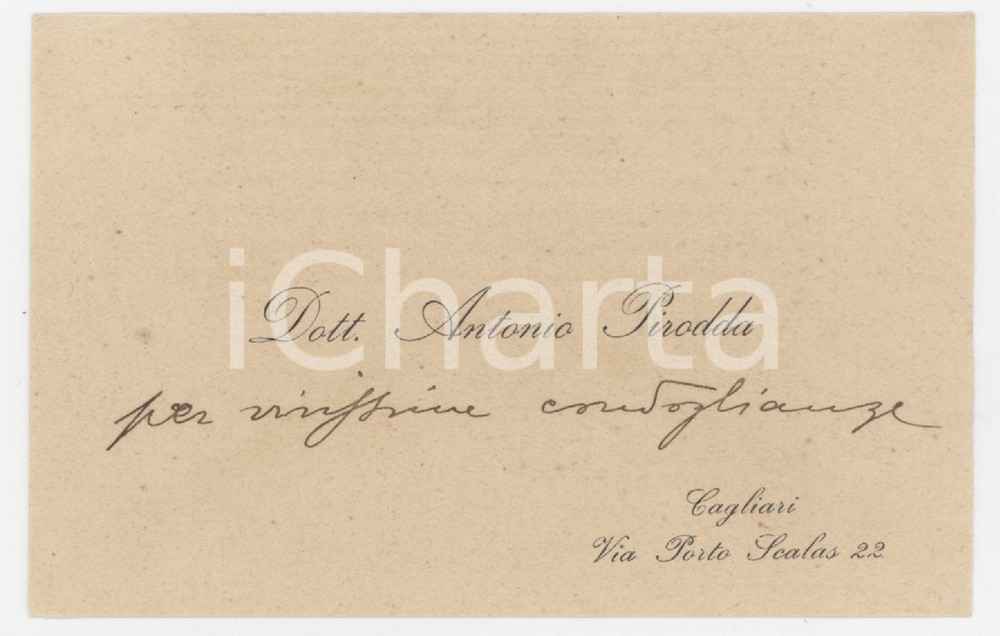 iCharta
Dott. Antonio Pirodda
per vivissime condoglianze
Cagliari
Via Porto Scalas 22